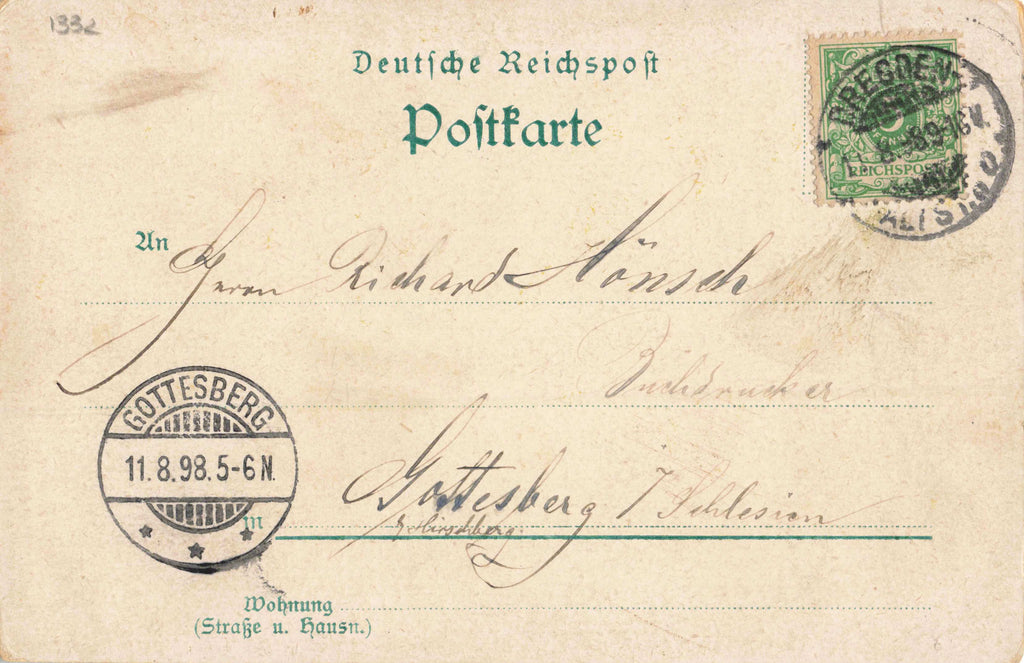 1332
Deutsche Reichspost
Postkarte
DRESDEN-
ALTST.
REICHSPOST
An
Herrn Richard Hönsch
Buchdrucker
GOTTESBERG
11.8.98.5-6N.
Gottesberg i/Schlesien
b/Hirschberg
in
Wohnung
(Straße u. Hausn.)